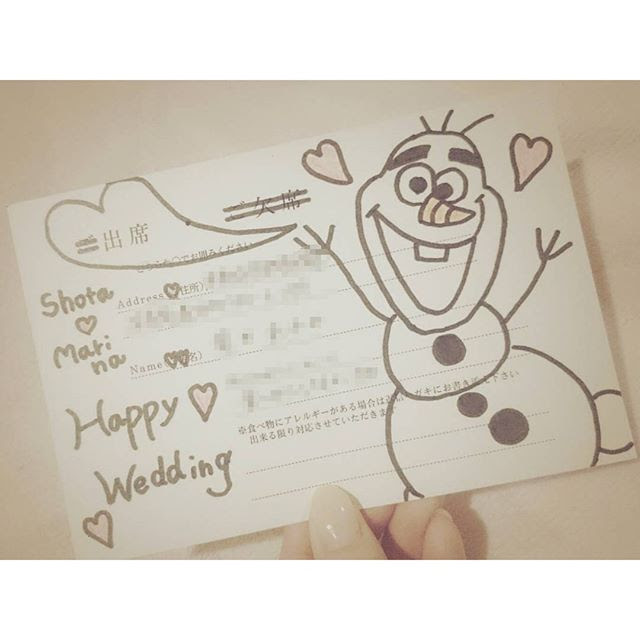 ご出席
ご欠席
どちらか○でお囲みください
Address(ご住所)
Name(ご芳名)
Shota
Mari
na
Happy
Wedding
※食べ物にアレルギーがある場合は
ガキにお書き
下さい
出来る限り対応させていただきます